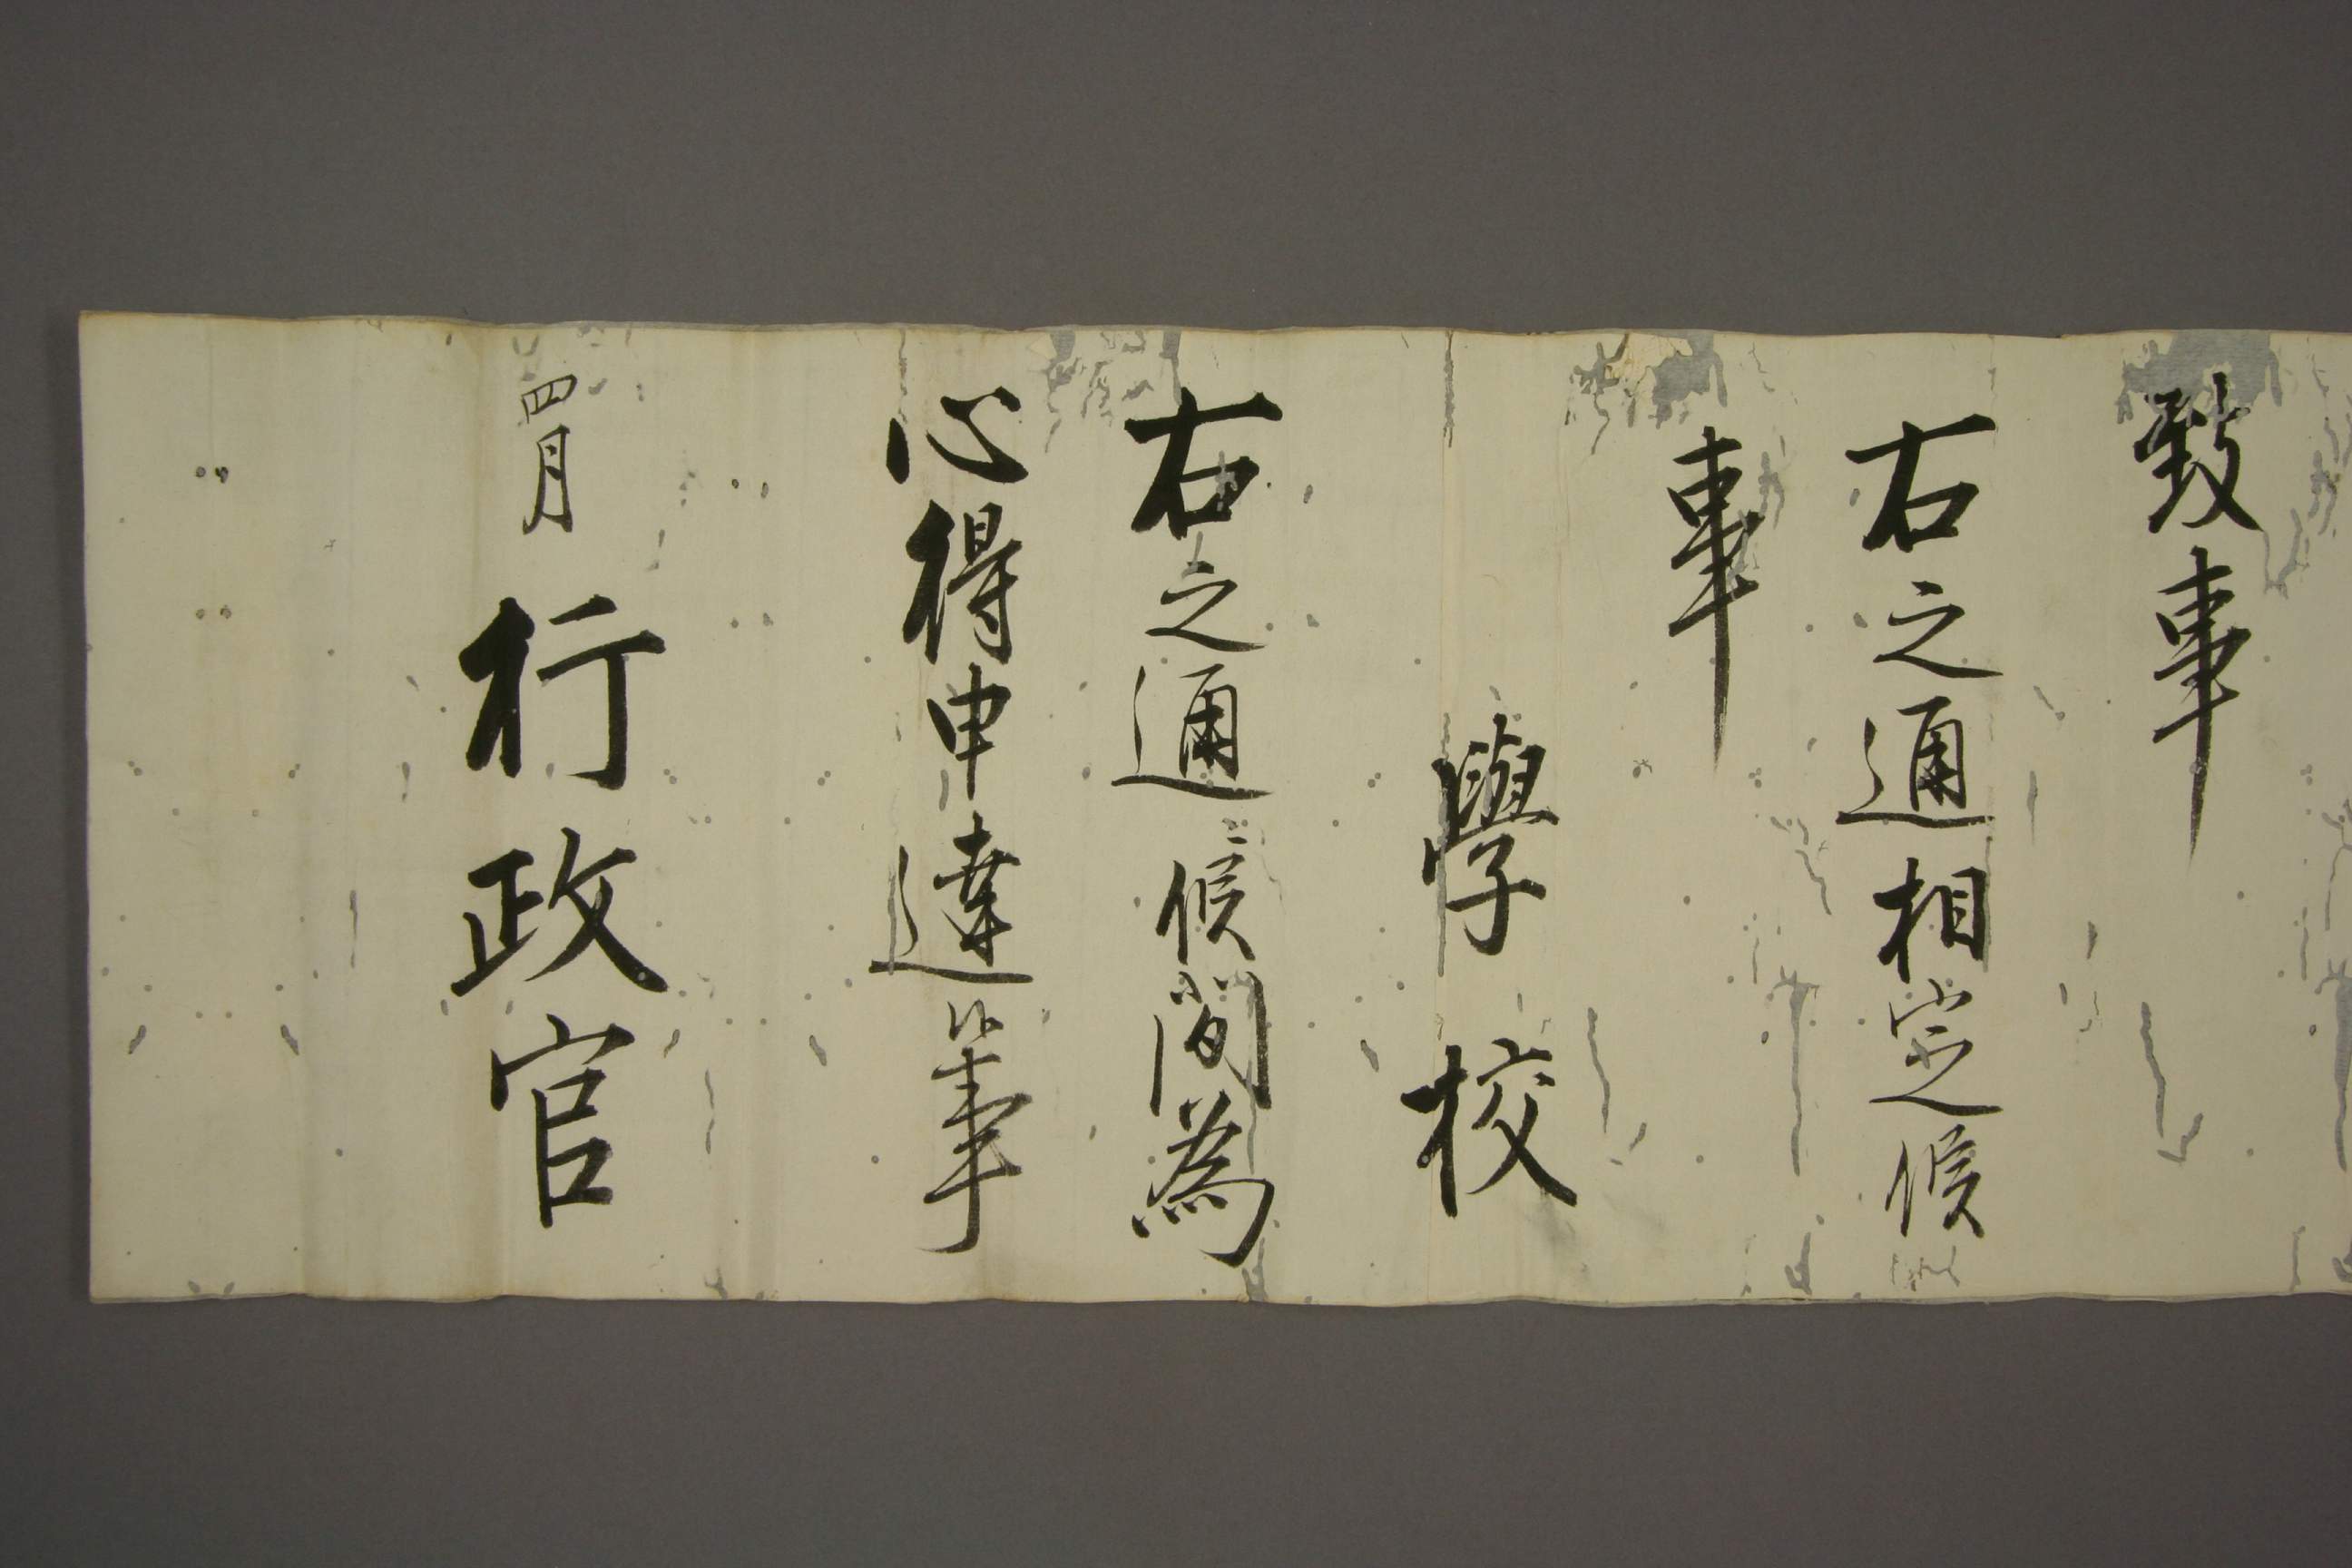 致事
右之通相定候
事
學校
右之通候間為
心得申達候事
四月 行政官